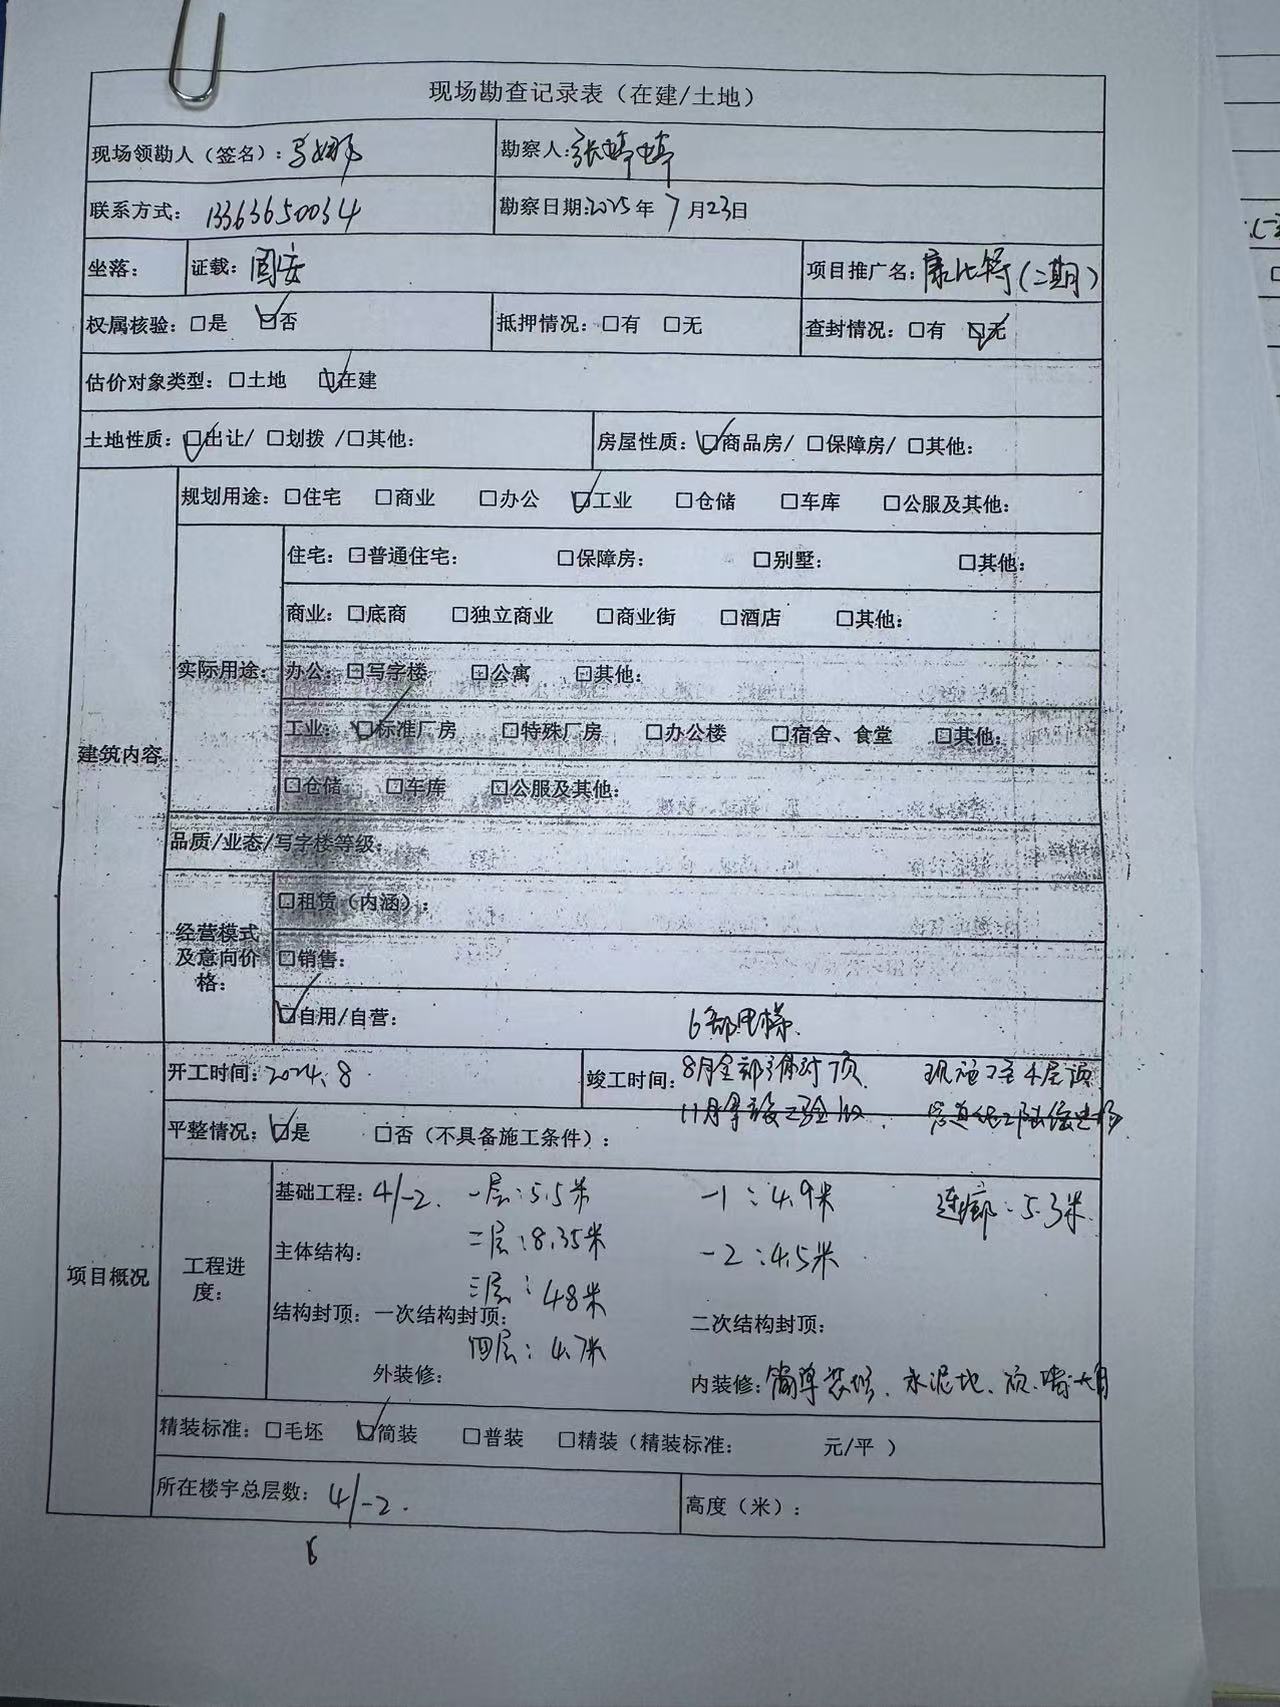 现场勘查记录表（在建/土地）
现场领勘人（签名）： 勘察人：张婷婷
联系方式：13363650034 勘察日期：2025年7月23日
坐落： 证载：固安 项目推广名：康比特（二期）
权属核验：☐是 ☑否 抵押情况：☐有 ☐无 查封情况：☐有 ☑无
估价对象类型：☐土地 ☑在建
土地性质：☑出让/ ☐划拨 /☐其他： 房屋性质：☑商品房/ ☐保障房/ ☐其他：
建筑内容
规划用途：☐住宅 ☐商业 ☐办公 ☑工业 ☐仓储 ☐车库 ☐公服及其他：
实际用途：
住宅：☐普通住宅： ☐保障房： ☐别墅： ☐其他：
商业：☐底商 ☐独立商业 ☐商业街 ☐酒店 ☐其他：
办公：☐写字楼 ☐公寓 ☐其他：
工业：☑标准厂房 ☐特殊厂房 ☐办公楼 ☐宿舍、食堂 ☐其他：
☐仓储 ☐车库 ☐公服及其他：
品质/业态/写字楼等级：
经营模式及意向价格：
☐租赁（内涵）：
☐销售：
☑自用/自营： 6部电梯.
项目概况
开工时间：2024.8 竣工时间：8月全部封顶 现施工至4层顶
11月
平整情况：☑是 ☐否（不具备施工条件）：
工程进度：
基础工程：4/-2. 一层：5.5米 -1：4.9米 连廊：5.3米.
二层：8.35米
主体结构： -2：4.5米
三层：4.8米
结构封顶：一次结构封顶： 二次结构封顶：
四层：4.7米
外装修： 内装修：简单装修、水泥地、顶、喷
精装标准：☐毛坯 ☑简装 ☐普装 ☐精装（精装标准： 元/平 ）
所在楼宇总层数：4/-2. 高度（米）：